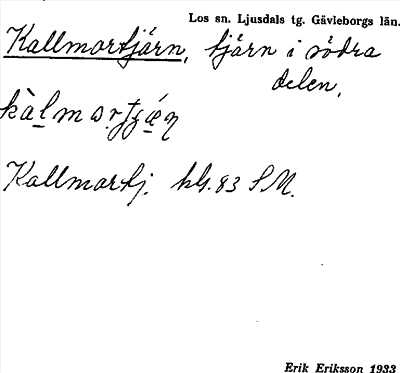 Los sn. Ljusdals tg. Gävleborgs län.
Kallmortjärn, tjärn i södra
delen.
Kallmortj. bl. 83 S M.
Erik Eriksson 1933